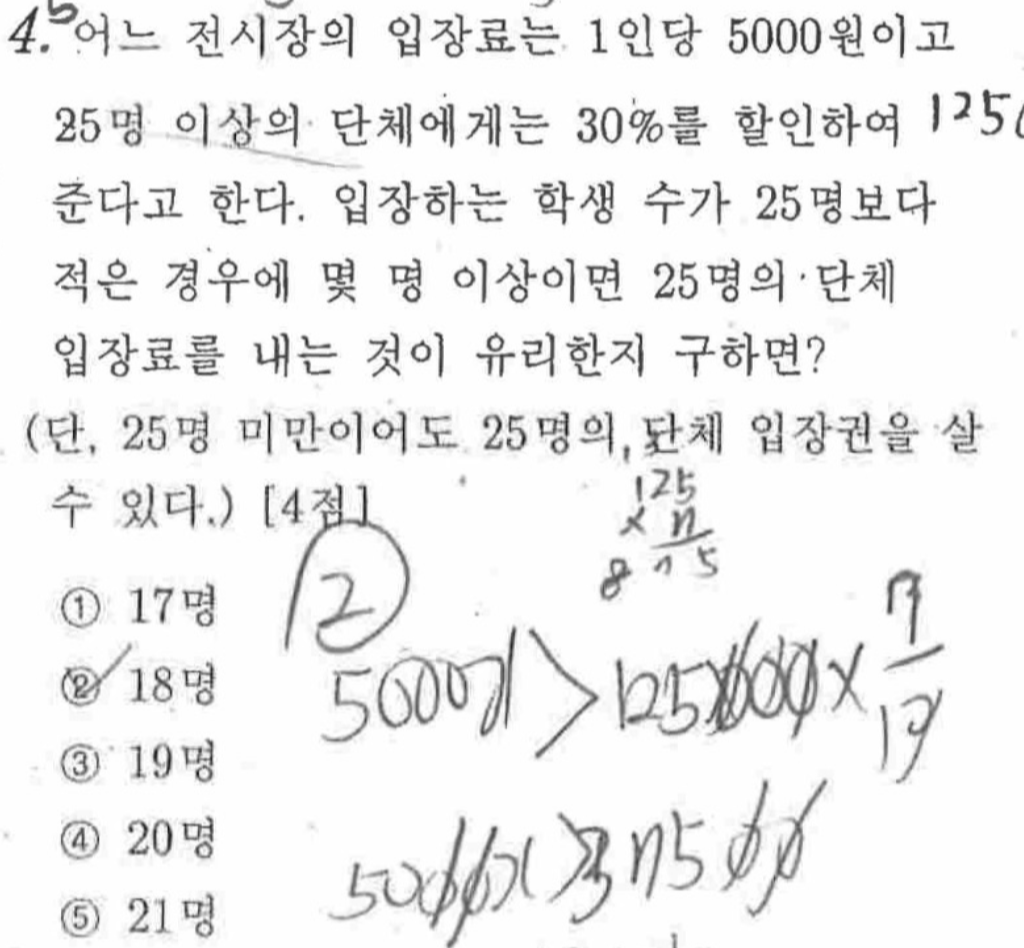 4. 어느 전시장의 입장료는 1인당 5000원이고
25명 이상의 단체에게는 30%를 할인하여 125
준다고 한다. 입장하는 학생 수가 25명보다
적은 경우에 몇 명 이상이면 25명의 단체
입장료를 내는 것이 유리한지 구하면?
(단, 25명 미만이어도 25명의 단체 입장권을 살
수 있다.) [4점]
125
× 7
8 7 5
① 17명 2
② 18명 5000x > 125000 × 7/10
③ 19명
④ 20명 5000x > 87500
⑤ 21명